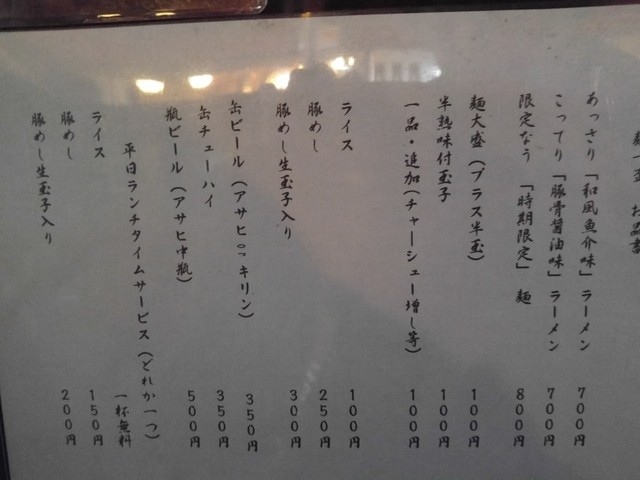 あっさり「和風魚介味」ラーメン 700円
こってり「豚骨醤油味」ラーメン 700円
限定なう「時期限定」麺 800円
麺大盛(プラス半玉) 100円
半熟味付玉子 100円
一品・追加(チャーシュー増し等) 100円
ライス 100円
豚めし 250円
豚めし生玉子入り 300円
缶ビール(アサヒorキリン) 350円
缶チューハイ 350円
瓶ビール(アサヒ中瓶) 500円
平日ランチタイムサービス(どれか一つ)
ライス 一杯無料
豚めし 150円
豚めし生玉子入り 200円